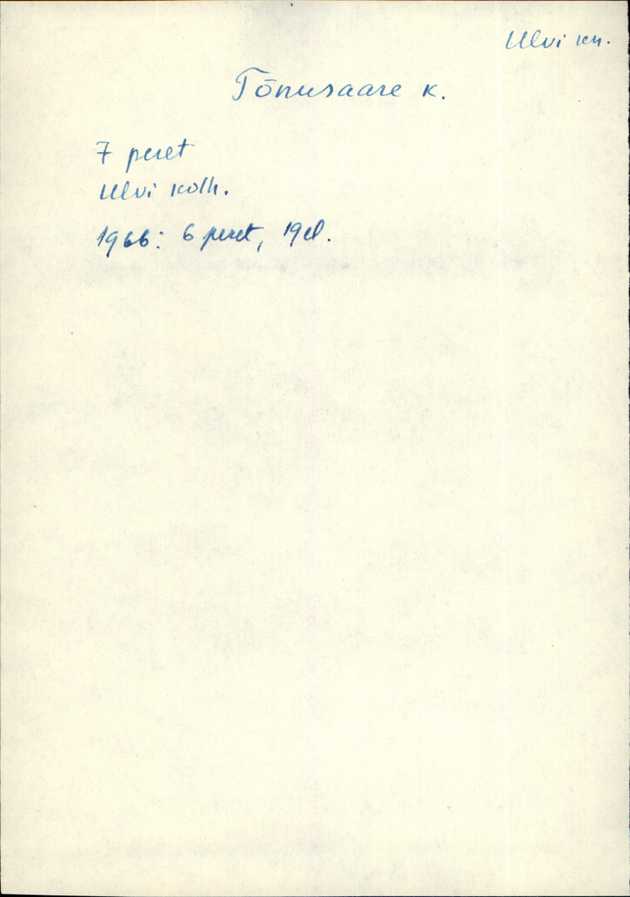 Ulvi kn.
Tõnusaare k.
7 peret
Ulvi kolh.
1966: 6 peret, 19 el.